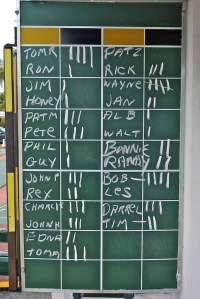 TOMR PATZ
RON RICK
JIM WAYNE
HONEY JAN
PATM ALB
PETE WALT
PHIL BONNIE
GUY RANDY
JOHNT BOB
REX LES
CHARLIE DARREL
JOHNH TIM
EDNA
TOMM